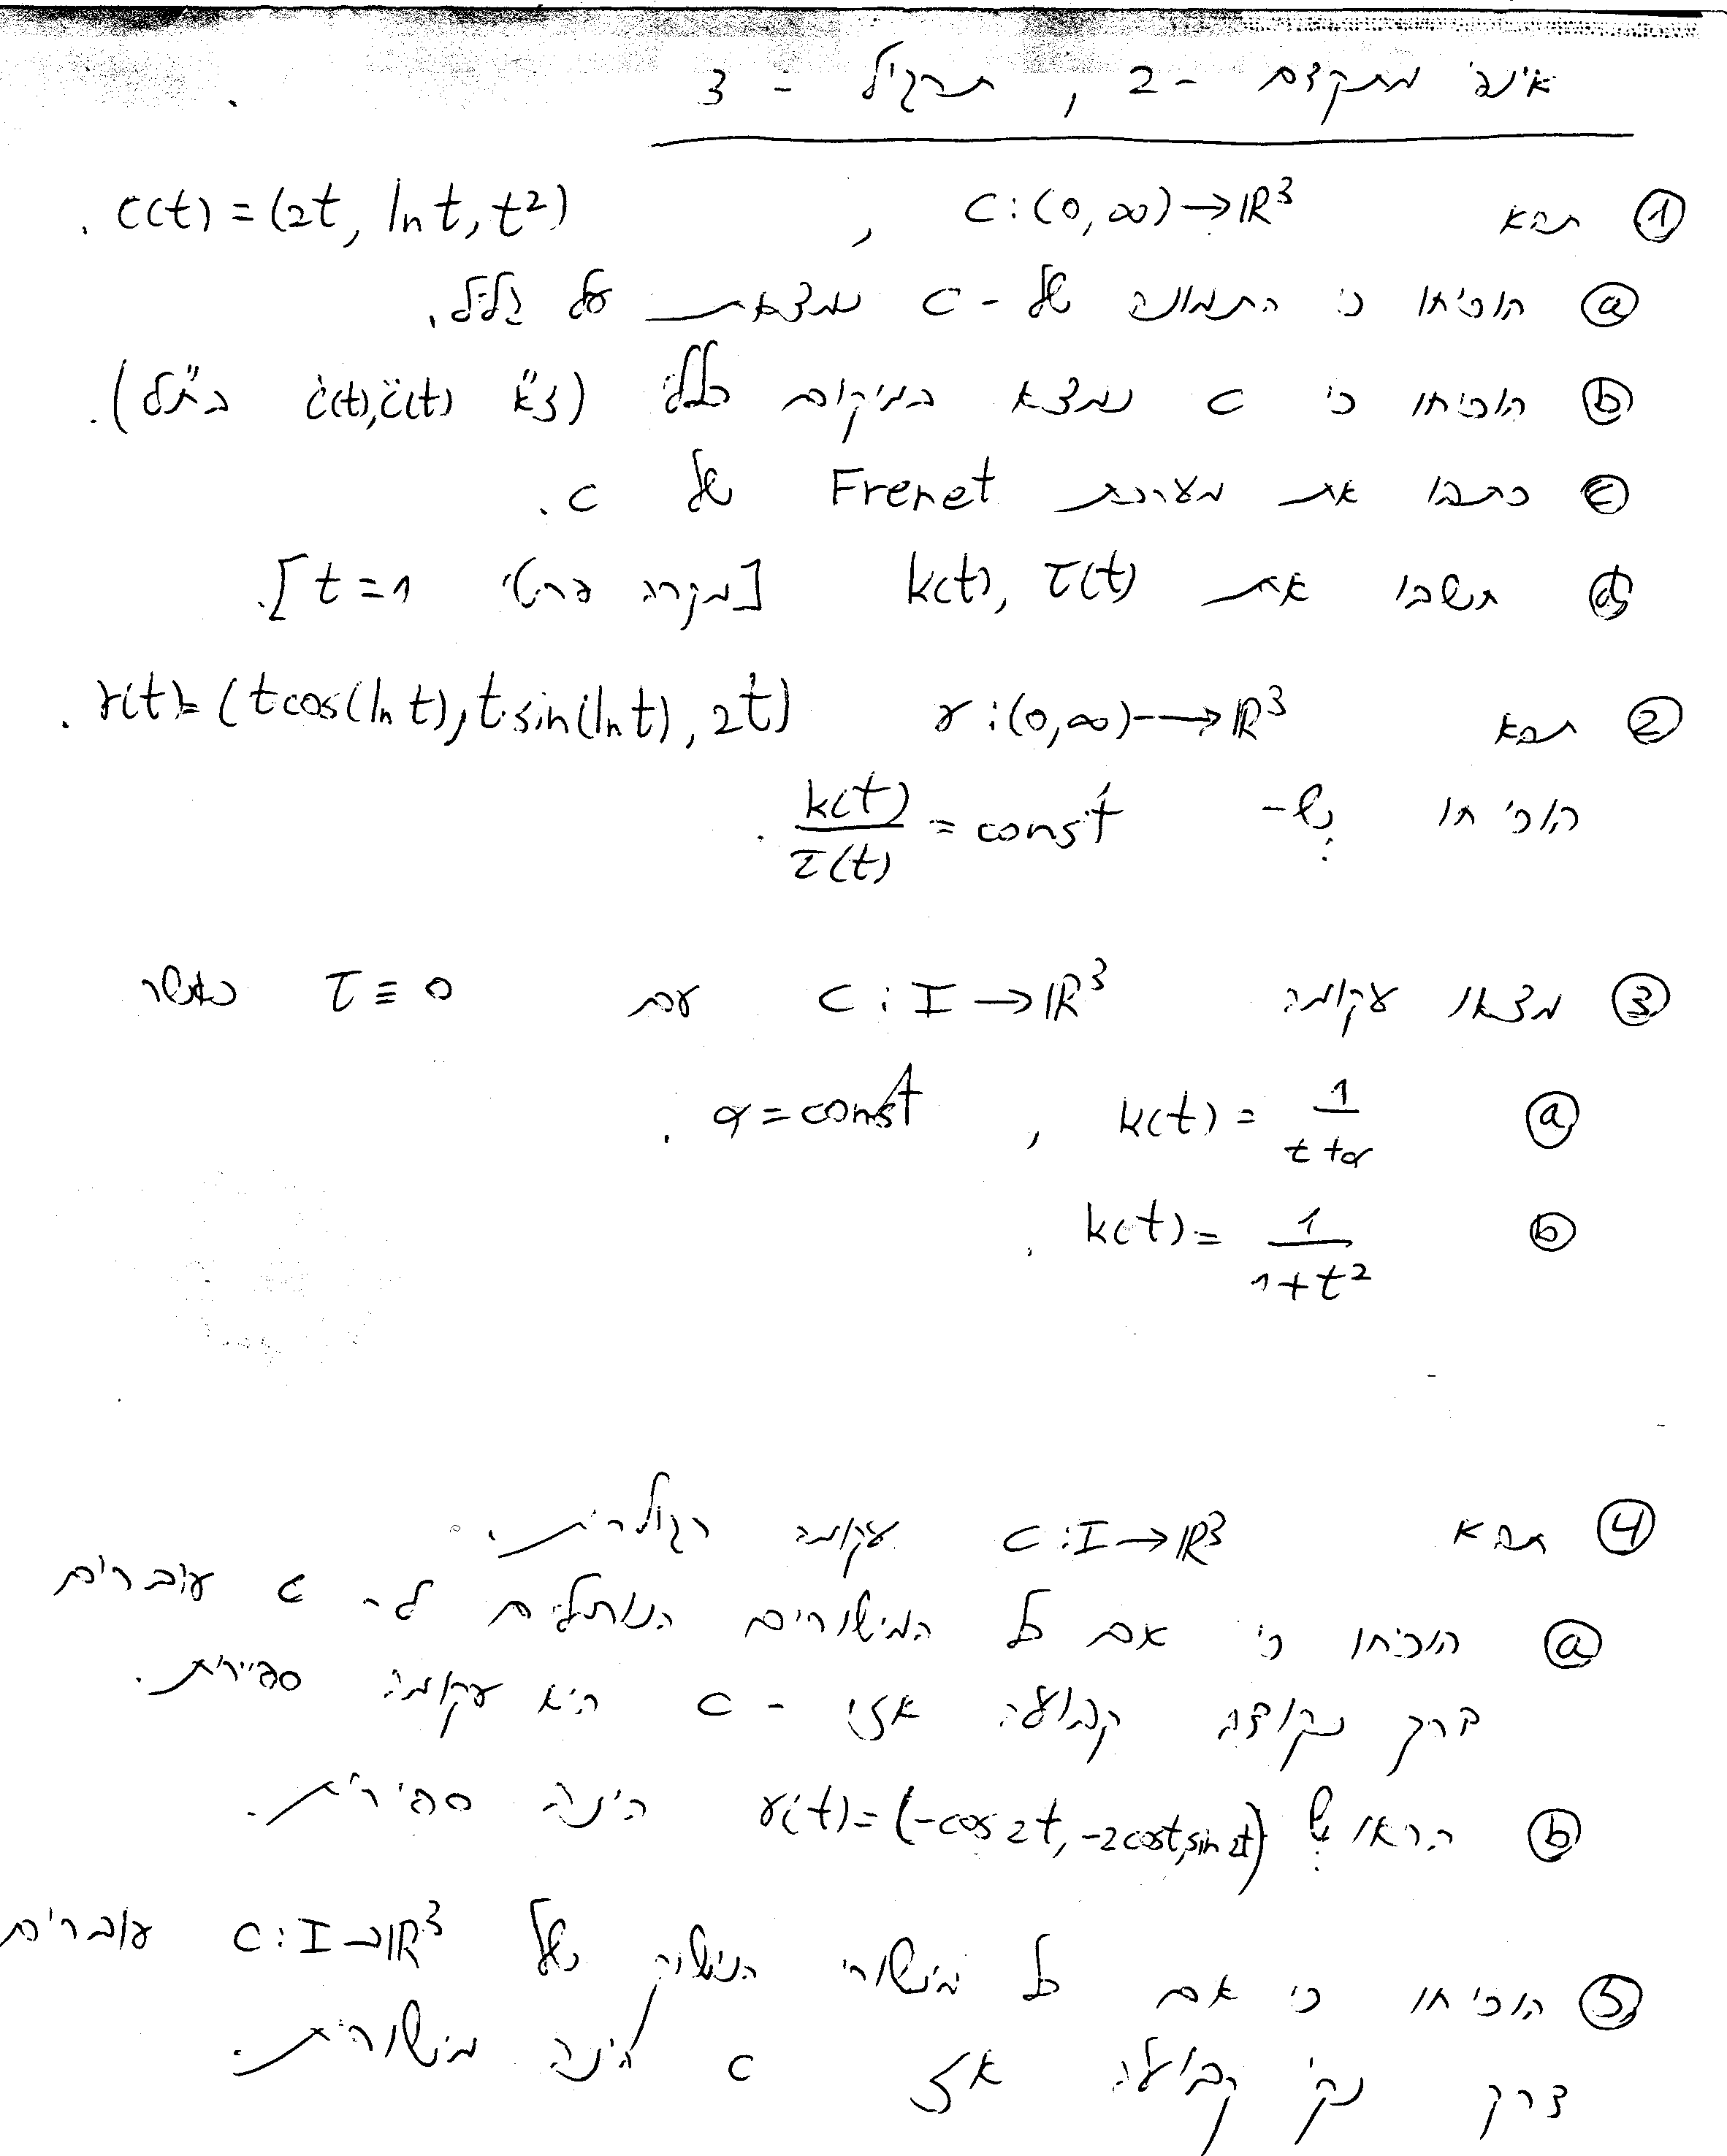 אינפי מתקדם - 2, תרגיל - 3
① תהא c:(0,∞)→ℝ³ , c(t)=(2t, ln t, t²).
ⓐ הוכיחו כי התמונה של - c נמצאת על גליל.
ⓑ הוכיחו כי c נמצא במיקום כללי (ז"א ċ(t),c̈(t) בת"ל).
ⓒ כתבו את מערכת Frenet של c.
ⓓ חשבו את k(t), τ(t) [מקרה פרטי t=1].
② תהא γ:(0,∞)→ℝ³ γ(t)=(t cos(ln t), t sin(ln t), 2t).
הוכיחו ש- k(t)/τ(t) = const.
③ מצאו עקומה c:I→ℝ³ עם τ≡0 כאשר
ⓐ k(t)= 1/(t+α) , α=const.
ⓑ k(t)= 1/(1+t²).
④ תהא c:I→ℝ³ עקומה רגולרית.
ⓐ הוכיחו כי אם כל המישורים הנורמלים ל- c עוברים
דרך נקודה קבועה אזי - c היא עקומה ספירית.
ⓑ הראו ש γ(t)=(-cos2t,-2cost,sin2t) הינה ספירית.
⑤ הוכיחו כי אם כל מישורי הנישוק של c:I→ℝ³ עוברים
דרך נק' קבועה אזי c הינה מישורית.